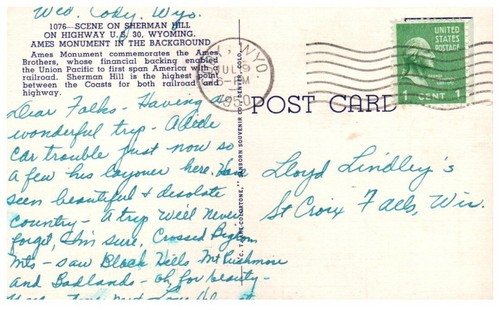 Wed. Cody, Wyo.
1076—SCENE ON SHERMAN HILL
ON HIGHWAY U.S. 30, WYOMING.
AMES MONUMENT IN THE BACKGROUND
Ames Monument commemorates the Ames
Brothers, whose financial backing enabled
the Union Pacific to first span America with a
railroad. Sherman Hill is the highest point
between the Coasts for both railroad and
highway.
Dear Folks - Having a
wonderful trip - A little
car trouble just now so
a few hrs layover here. Have
seen beautiful & desolate
country - A trip We'll Never
forget, I'm sure. Crossed Bighorn
Mts - saw Black Hills Mt Rushmore
and Badlands - oh, for beauty -
SANBORN SOUVENIR CO., DENVER, COLO.
WYO.
JUL
PM
1950
POST CARD
UNITED
STATES
POSTAGE
1 CENT 1
Lloyd Lindley's
St Croix Falls, Wis.